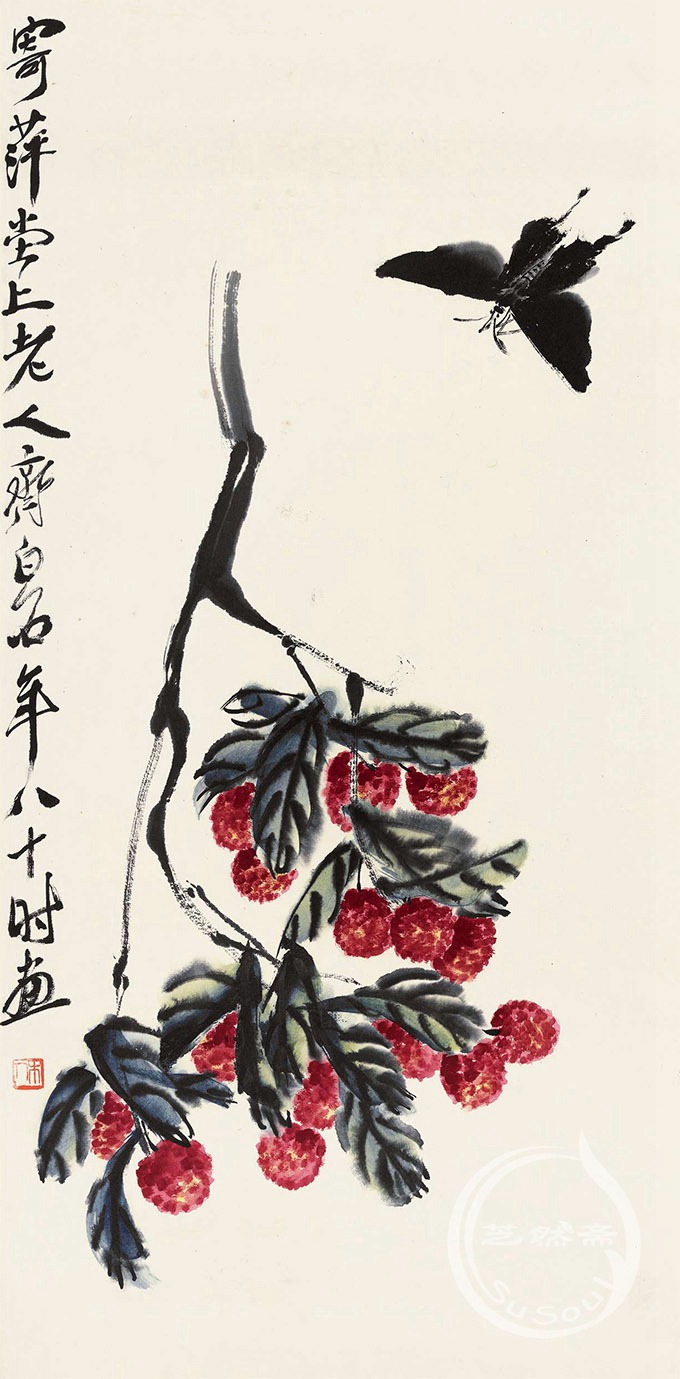 寄萍堂上老人齊白石年八十時画
木人
芝然斋
SuSoul